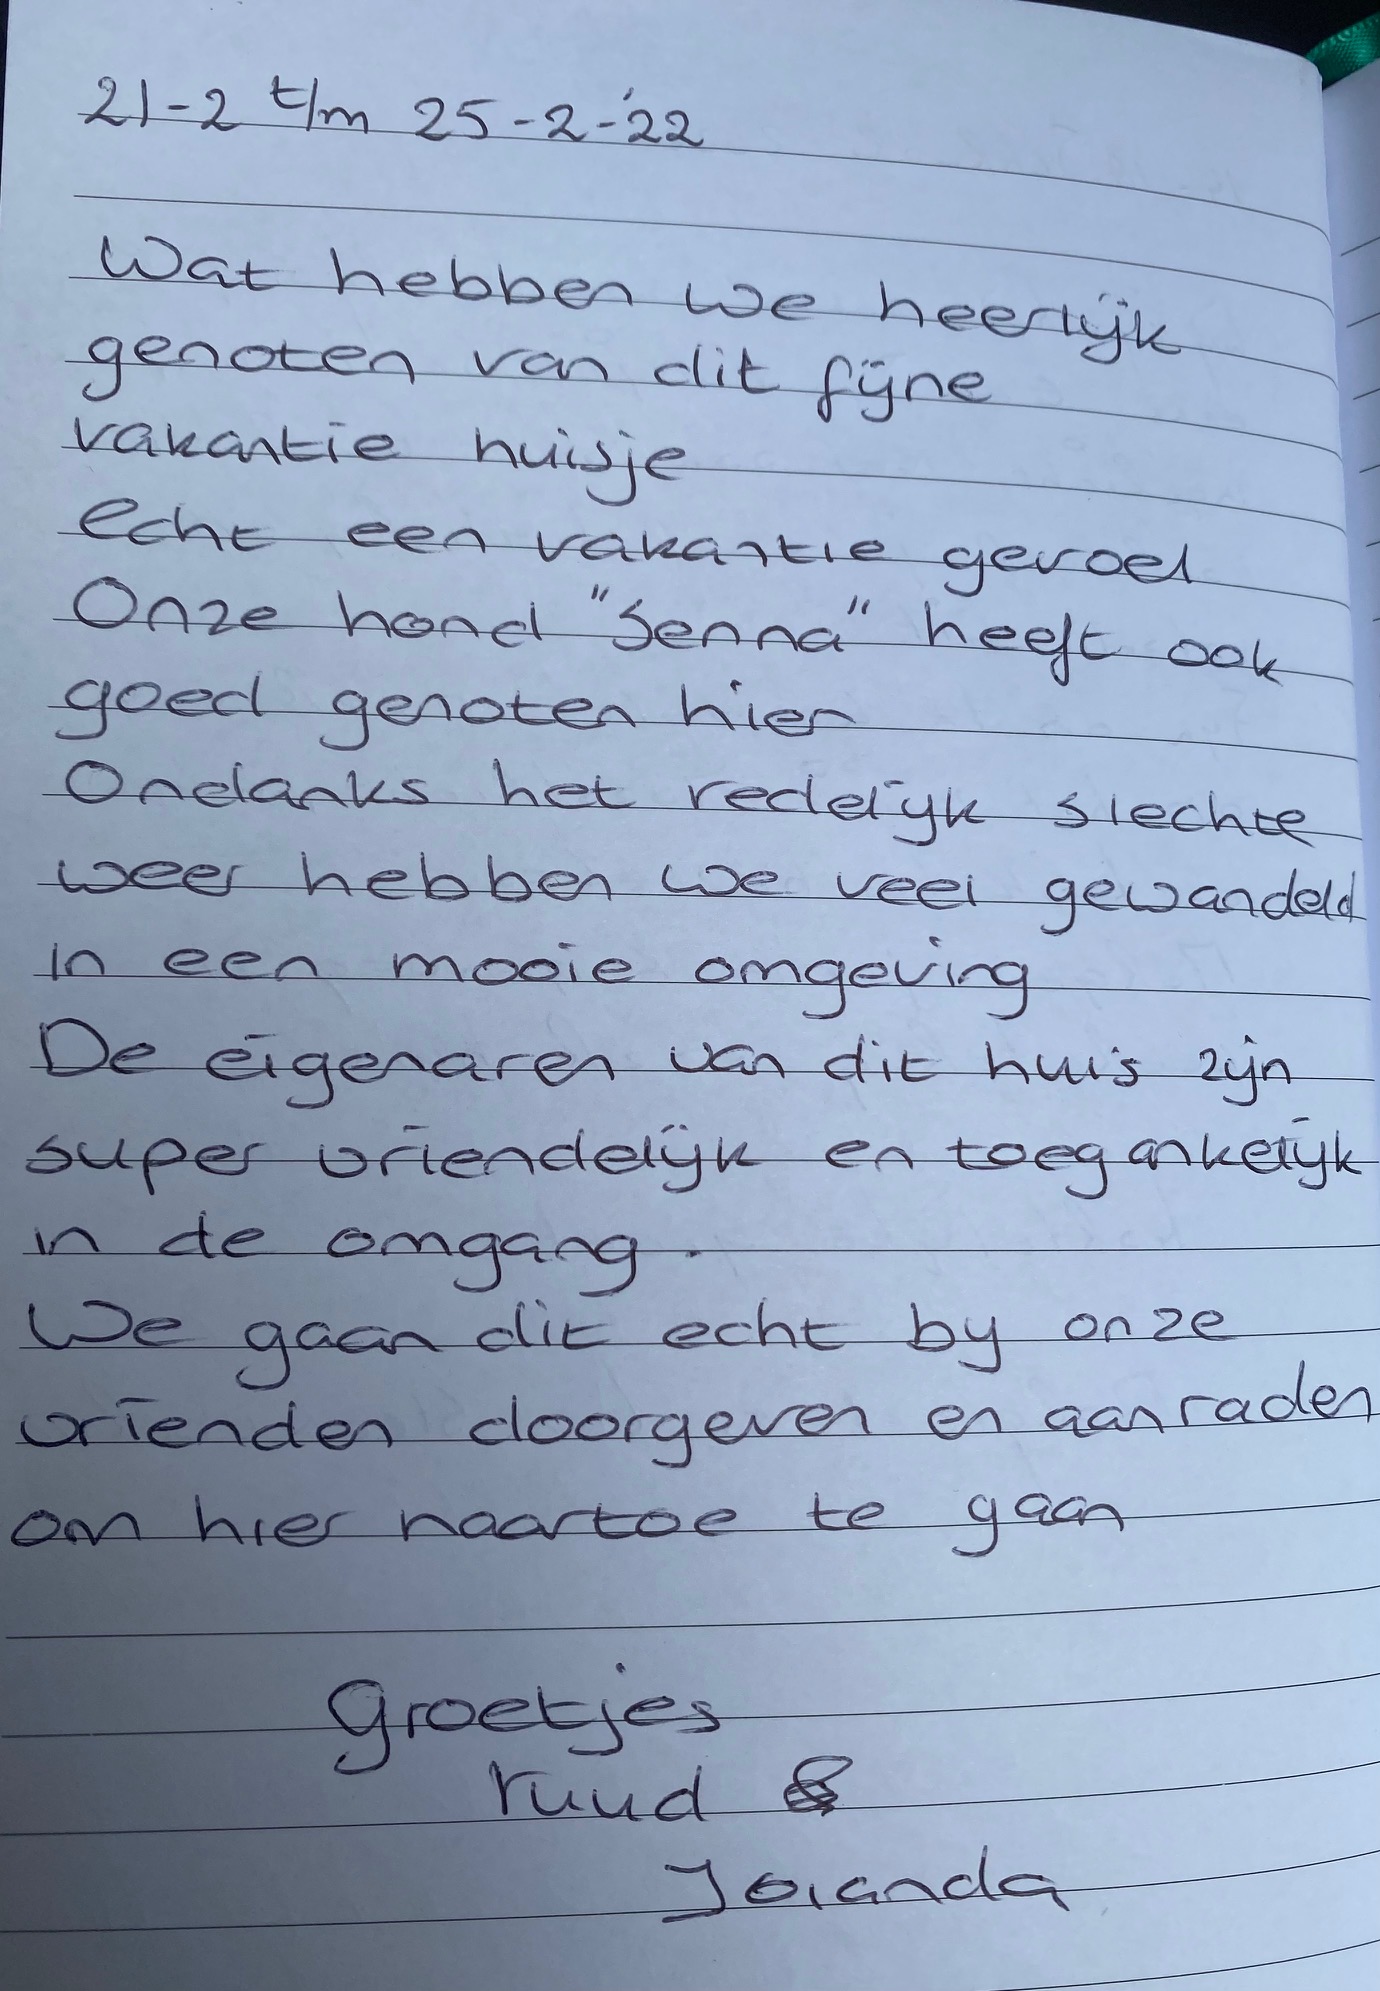 21-2 t/m 25-2-'22
Wat hebben we heerlijk
genoten van dit fijne
vakantie huisje
echt een vakantie gevoel
Onze hond "Senna" heeft ook
goed genoten hier
Ondanks het redelijk slechte
weer hebben we veel gewandeld
in een mooie omgeving
De eigenaren van dit huis zijn
super vriendelijk en toegankelijk
in de omgang.
We gaan dit echt bij onze
vrienden doorgeven en aanraden
om hier naartoe te gaan
Groetjes
ruud &
Jolanda